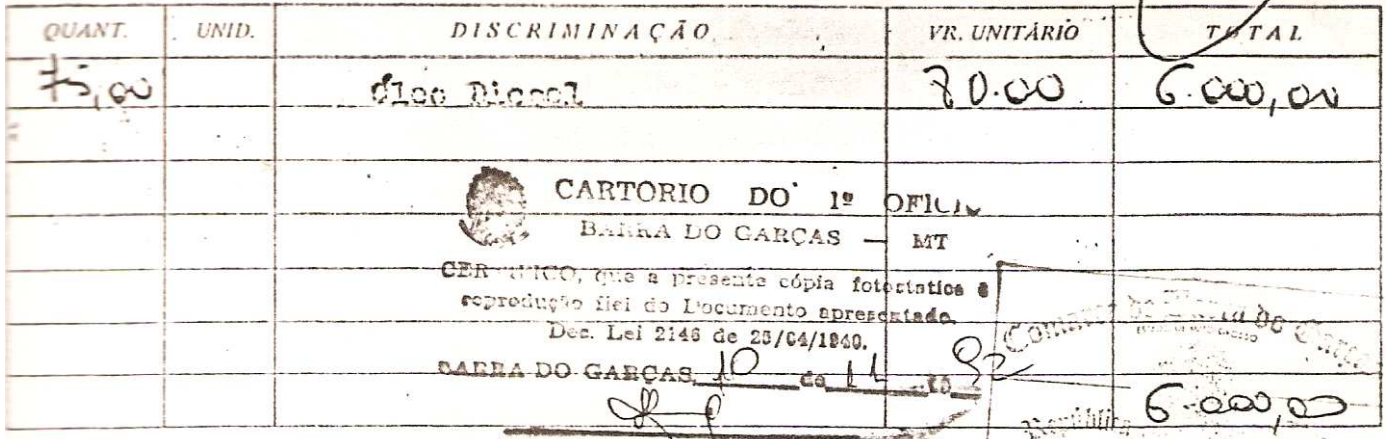 QUANT. UNID. DISCRIMINAÇÃO VR. UNITÁRIO TOTAL
75,00 Óleo Diesel 80.00 6.000,00
CARTORIO DO 1º OFICIO
BARRA DO GARÇAS — MT
CERTIFICO, que a presente cópia fotostatica é
reprodução fiel do Documento apresentado.
Dec. Lei 2148 de 25/04/1940.
BARRA DO GARÇAS, 10 de 11 de 92
Comarca de Barra do Garças
República
6.000,00